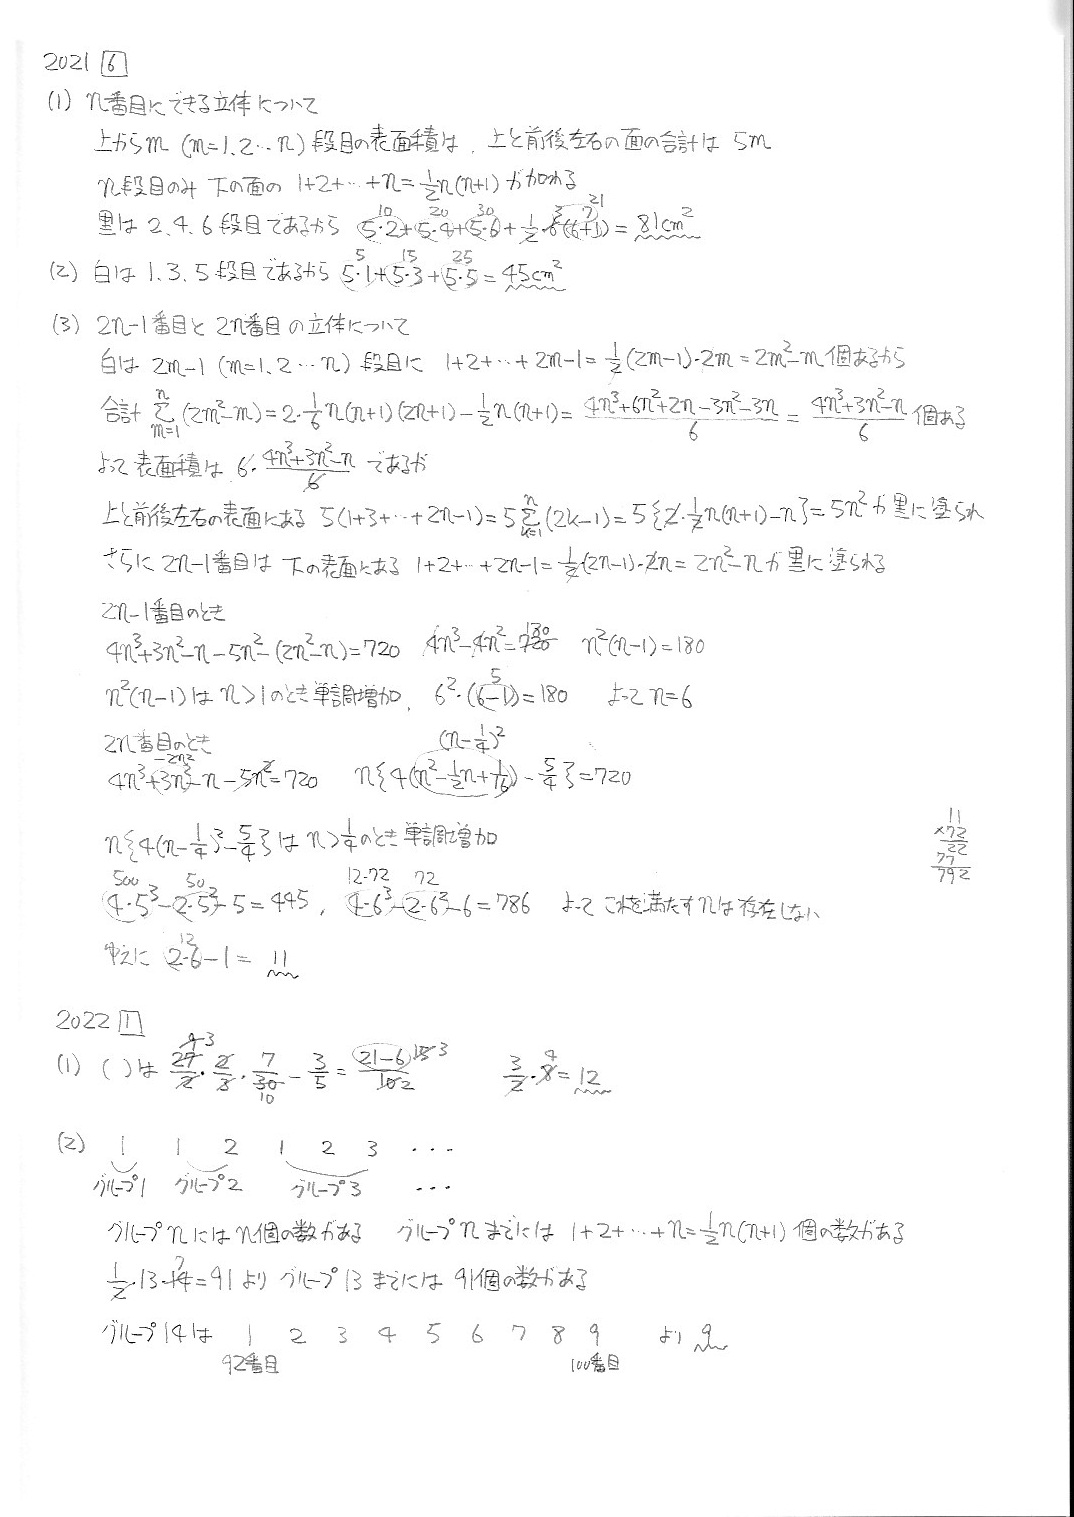 2021 6
(1) n番目にできる立体について
上からm (m=1.2…n) 段目の表面積は、上と前後左右の面の合計は 5m
n段目のみ 下の面の 1+2+…+n=1/2n(n+1) が加わる
黒は 2.4.6段目であるから 5・2+5・4+5・6+1/2・6(6+1)=81cm² 10 20 30 3 7 21
(2) 白は 1.3.5段目であるから 5・1+5・3+5・5=45cm² 5 15 25
(3) 2n-1番目と 2n番目の立体について
白は 2m-1 (m=1.2…n) 段目に 1+2+…+2m-1=1/2(2m-1)・2m=2m²-m 個あるから
合計 Σ[m=1→n](2m²-m)=2・1/6n(n+1)(2n+1)-1/2n(n+1)=(4n³+6n²+2n-3n²-3n)/6=(4n³+3n²-n)/6 個ある
よって表面積は 6・(4n³+3n²-n)/6 であるが
上と前後左右の表面にある 5(1+3+…+2n-1)=5Σ[k=1→n](2k-1)=5{2・1/2n(n+1)-n}=5n² が黒に塗られ
さらに 2n-1番目は 下の表面にある 1+2+…+2n-1=1/2(2n-1)・2n=2n²-n が黒に塗られる
2n-1番目のとき
4n³+3n²-n-5n²-(2n²-n)=720 4n³-4n²=720 180 n²(n-1)=180
n²(n-1)は n>1のとき単調増加、6²・(6-1)=180 5 よって n=6
2n番目のとき (n-1/4)²
4n³+3n²-n-5n²=720 -2n² n{4(n²-1/2n+1/16)-5/4}=720
n{4(n-1/4)²-5/4}は n>1/4のとき単調増加
11 ×72 22 77 792
4・5³-2・5²-5=445、4・6³-2・6²-6=786 500 50 12・72 72 よって これを満たすnは存在しない
ゆえに 2・6-1=11 12
2022 1
(1) ( )は 27/2・2/3・7/30-3/5=(21-6)/10 9 3 10 15 3 2 3/2・8=12 4
(2) 1 1 2 1 2 3 …
グループ1 グループ2 グループ3 …
グループnにはn個の数がある グループnまでには 1+2+…+n=1/2n(n+1) 個の数がある
1/2・13・14=91より グループ13までには 91個の数がある 7
グループ14は 1 2 3 4 5 6 7 8 9 より 9
92番目 100番目